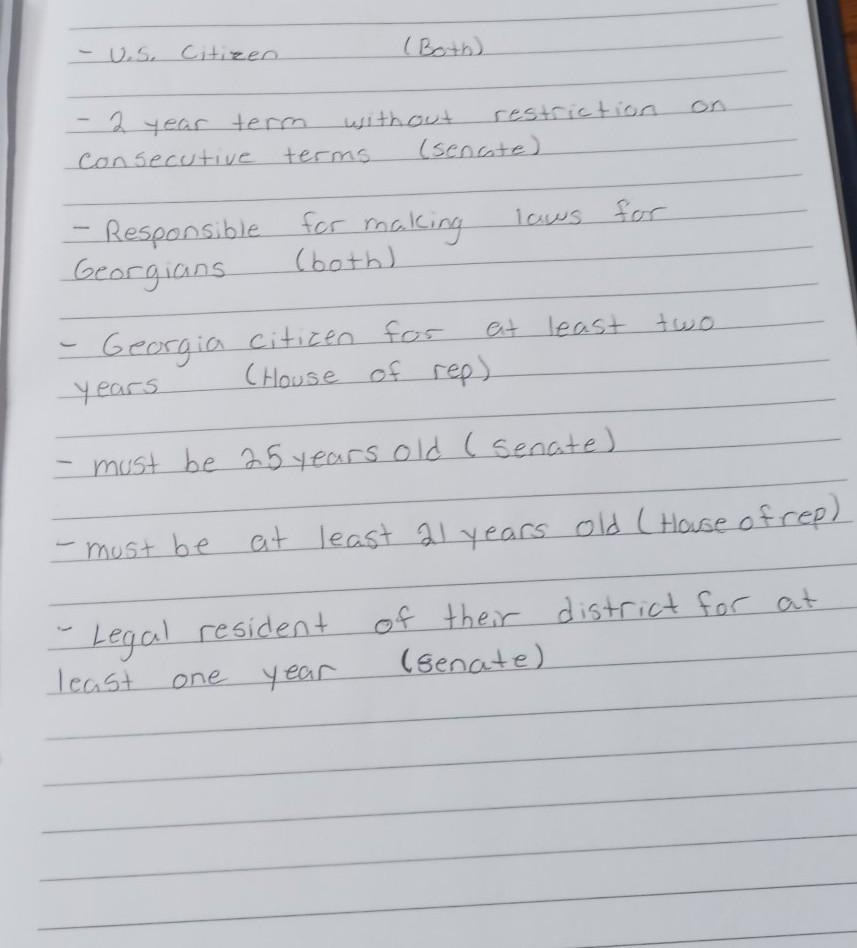 - U.S. Citizen (Both)
- 2 year term without restriction on
consecutive terms (senate)
- Responsible for making laws for
Georgians (both)
- Georgia citizen for at least two
years (House of rep)
- must be 25 years old (senate)
- must be at least 21 years old (House of rep)
- Legal resident of their district for at
least one year (senate)